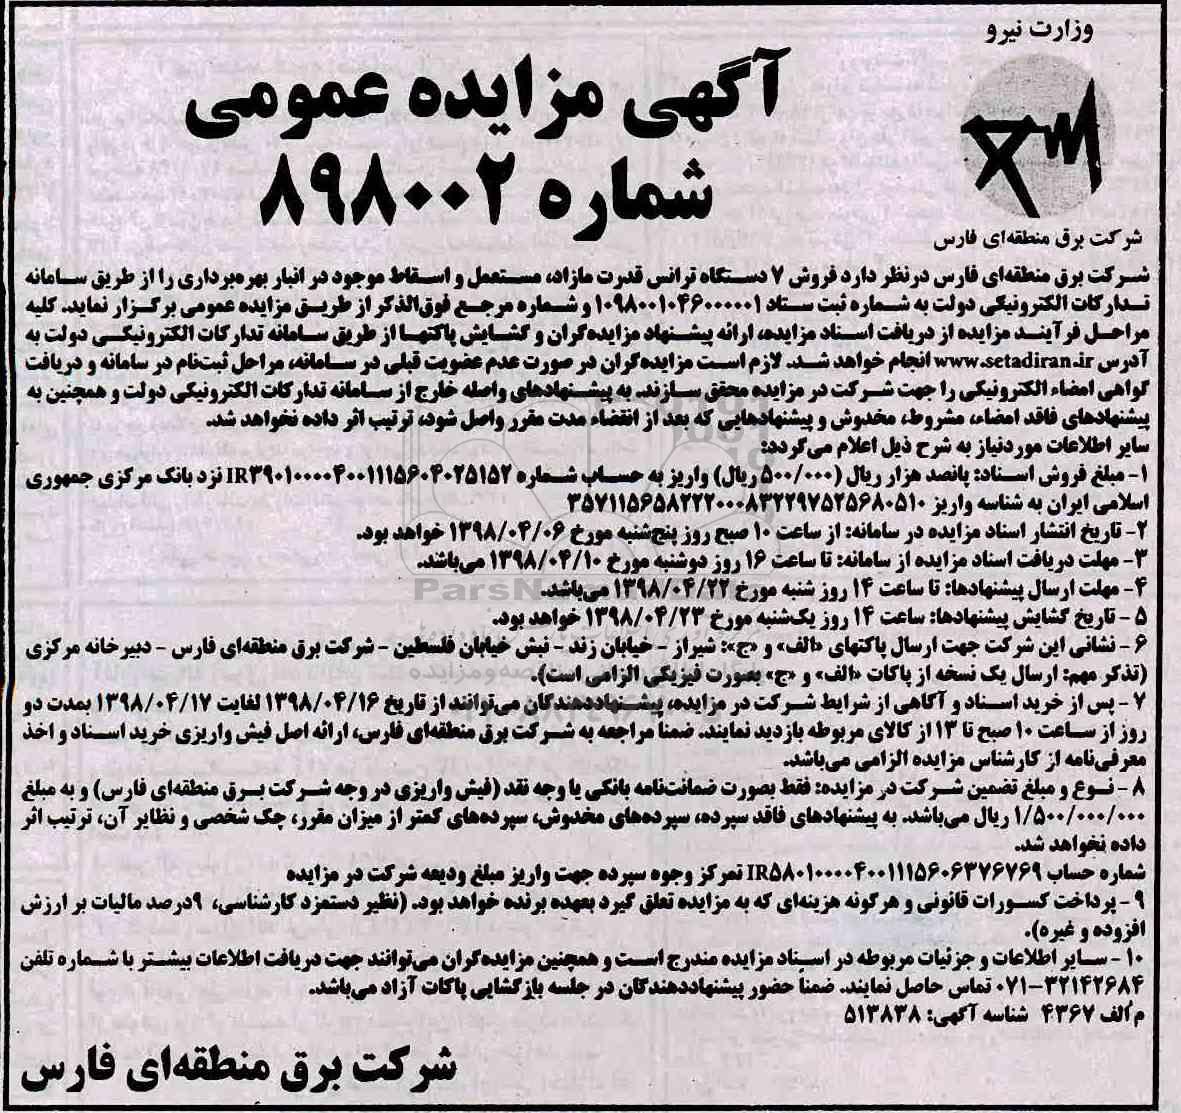 وزارت نیرو
آگهی مزایده عمومی
شماره ۸۹۸۰۰۲
شرکت برق منطقه‌ای فارس
شرکت برق منطقه‌ای فارس درنظر دارد فروش ۷ دستگاه ترانس قدرت مازاد، مستعمل و اسقاط موجود در انبار بهره‌برداری را از طریق سامانه
تدارکات الکترونیکی دولت به شماره ثبت ستاد ۱۰۹۸۰۰۱۰۴۶۰۰۰۰۰۱ و شماره مرجع فوق‌الذکر از طریق مزایده عمومی برگزار نماید. کلیه
مراحل فرآیند مزایده از دریافت اسناد مزایده، ارائه پیشنهاد مزایده‌گران و گشایش پاکتها از طریق سامانه تدارکات الکترونیکی دولت به
آدرس www.setadiran.ir انجام خواهد شد. لازم است مزایده‌گران در صورت عدم عضویت قبلی در سامانه، مراحل ثبت‌نام در سامانه و دریافت
گواهی امضاء الکترونیکی را جهت شرکت در مزایده محقق سازند. به پیشنهادهای واصله خارج از سامانه تدارکات الکترونیکی دولت و همچنین به
پیشنهادهای فاقد امضاء، مشروط، مخدوش و پیشنهادهایی که بعد از انقضاء مدت مقرر واصل شود، ترتیب اثر داده نخواهد شد.
سایر اطلاعات موردنیاز به شرح ذیل اعلام می‌گردد:
۱- مبلغ فروش اسناد: پانصد هزار ریال (۵۰۰/۰۰۰ ریال) واریز به حساب شماره IR۳۹۰۱۰۰۰۰۴۰۰۱۱۱۵۶۰۴۰۲۵۱۵۲ نزد بانک مرکزی جمهوری
اسلامی ایران به شناسه واریز ۳۵۷۱۱۵۶۵۸۲۲۲۰۰۰۸۳۲۲۹۷۵۲۵۶۸۰۵۱۰
۲- تاریخ انتشار اسناد مزایده در سامانه: از ساعت ۱۰ صبح روز پنج‌شنبه مورخ ۱۳۹۸/۰۴/۰۶ خواهد بود.
۳- مهلت دریافت اسناد مزایده از سامانه: تا ساعت ۱۶ روز دوشنبه مورخ ۱۳۹۸/۰۴/۱۰ می‌باشد.
۴- مهلت ارسال پیشنهادها: تا ساعت ۱۴ روز شنبه مورخ ۱۳۹۸/۰۴/۲۲ می‌باشد.
۵ - تاریخ گشایش پیشنهادها: ساعت ۱۴ روز یک‌شنبه مورخ ۱۳۹۸/۰۴/۲۳ خواهد بود.
۶ - نشانی این شرکت جهت ارسال پاکتهای «الف» و «ج»: شیراز - خیابان زند - نبش خیابان فلسطین - شرکت برق منطقه‌ای فارس - دبیرخانه مرکزی
(تذکر مهم: ارسال یک نسخه از پاکات «الف» و «ج» بصورت فیزیکی الزامی است).
۷ - پس از خرید اسناد و آگاهی از شرایط شرکت در مزایده، پیشنهاددهندگان می‌توانند از تاریخ ۱۳۹۸/۰۴/۱۶ لغایت ۱۳۹۸/۰۴/۱۷ بمدت دو
روز از ساعت ۱۰ صبح تا ۱۳ از کالای مربوطه بازدید نمایند. ضمناً مراجعه به شرکت برق منطقه‌ای فارس، ارائه اصل فیش واریزی خرید اسناد و اخذ
معرفی‌نامه از کارشناس مزایده الزامی می‌باشد.
۸ - نوع و مبلغ تضمین شرکت در مزایده: فقط بصورت ضمانت‌نامه بانکی یا وجه نقد (فیش واریزی در وجه شرکت برق منطقه‌ای فارس) و به مبلغ
۱/۵۰۰/۰۰۰/۰۰۰ ریال می‌باشد. به پیشنهادهای فاقد سپرده، سپرده‌های مخدوش، سپرده‌های کمتر از میزان مقرر، چک شخصی و نظایر آن، ترتیب اثر
داده نخواهد شد.
شماره حساب IR۵۸۰۱۰۰۰۰۴۰۰۱۱۱۵۶۰۶۳۷۶۷۶۹ تمرکز وجوه سپرده جهت واریز مبلغ ودیعه شرکت در مزایده
۹ - پرداخت کسورات قانونی و هرگونه هزینه‌ای که به مزایده تعلق گیرد بعهده برنده خواهد بود. (نظیر دستمزد کارشناسی، ۹درصد مالیات بر ارزش
افزوده و غیره).
۱۰ - سایر اطلاعات و جزئیات مربوطه در اسناد مزایده مندرج است و همچنین مزایده‌گران می‌توانند جهت دریافت اطلاعات بیشتر با شماره تلفن
۰۷۱-۳۲۱۴۲۶۸۴ تماس حاصل نمایند. ضمناً حضور پیشنهاددهندگان در جلسه بازگشایی پاکات آزاد می‌باشد.
م الف ۴۳۶۷ شناسه آگهی: ۵۱۳۸۳۸
شرکت برق منطقه‌ای فارس